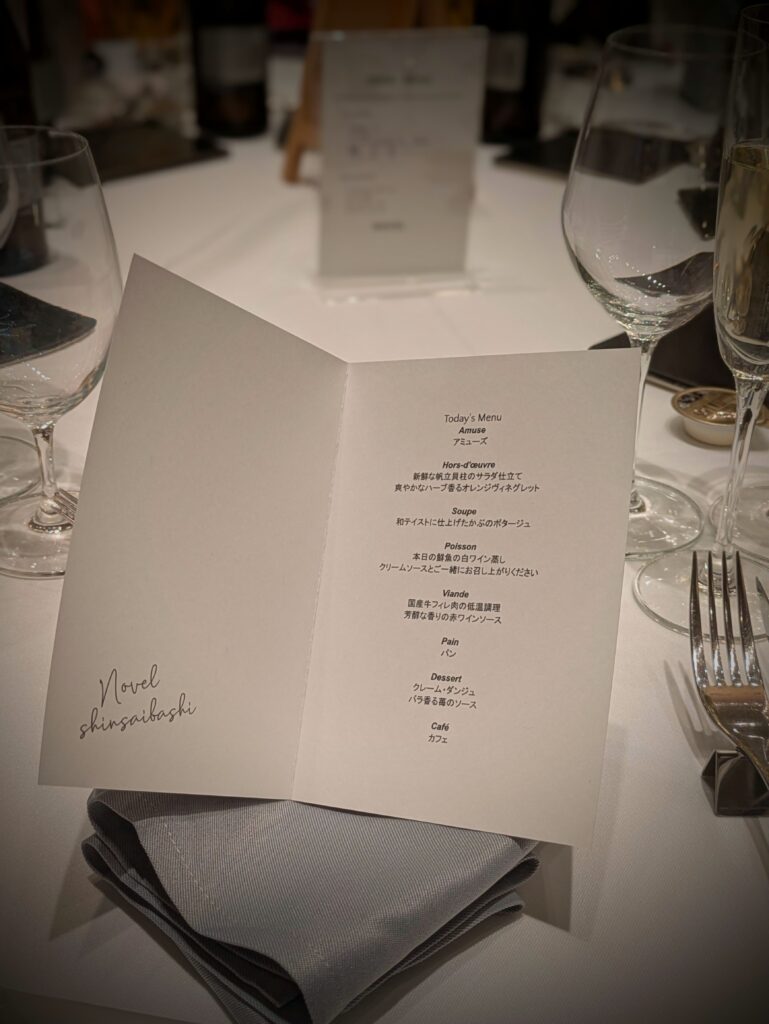 Novel
shinsaibashi
Today's Menu
Amuse
アミューズ
Hors-d'œuvre
新鮮な帆立貝柱のサラダ仕立て
爽やかなハーブ香るオレンジヴィネグレット
Soupe
和テイストに仕上げたかぶのポタージュ
Poisson
本日の鮮魚の白ワイン蒸し
クリームソースとご一緒にお召し上がりください
Viande
国産牛フィレ肉の低温調理
芳醇な香りの赤ワインソース
Pain
パン
Dessert
クレーム・ダンジュ
バラ香る苺のソース
Café
カフェ